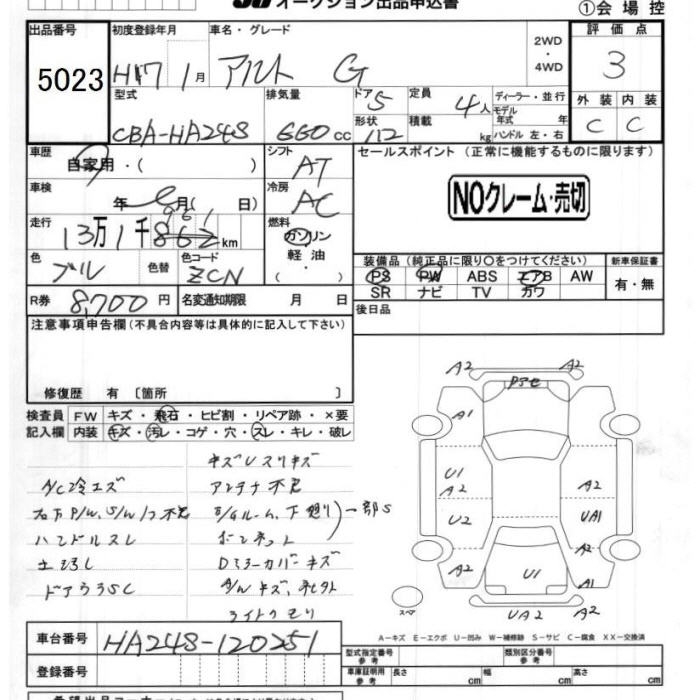 オークション出品申込書
①会場控
出品番号 初度登録年月 車名・グレード 2WD・4WD 評価点
5023 H17 1月 アルト G 3
型式 排気量 ドア 定員 ディーラー・並行 外装 内装
CBA-HA24S 660cc 5 4人 モデル年式 年式
形状 積載 kg ハンドル 左・右 C C
車歴 シフト セールスポイント(正常に機能するものに限ります)
自家用・( ) AT
車検 冷房 NOクレーム・売切
年 月( 日) AC
走行 燃料
13万1千862km ガソリン
161
軽油・( )
色 色替 色コード 装備品(純正品に限り〇をつけてください) 新車保証書
ブル ZCN PS PW ABS エアB AW 有・無
SR ナビ TV カワ
R券 8,700円 名変通知期限 月 日 後日品
注意事項申告欄(不具合内容等は具体的に記入して下さい)
修復歴 有 〔箇所 〕
検査員 FW キズ・飛石・ヒビ割・リペア跡・×要
記入欄 内装 キズ・汚レ・コゲ・穴・スレ・キレ・破レ
キズUスリキズ
A/C冷エズ アンテナ不良
右下P/W、S/W1コ不良
ハンドルスレ ボンネット 一部S
Dミラーカバーキズ
ドアウラSC
ライトクモリ
A2 A2
A1
U1
A2 A2
U2 UA1
A2
U1 A1
UA2 A2
スペア
A-キズ E-エクボ U-凹み W-補修跡 S-サビ C-腐食 XX-交換済
車台番号 HA24S-120251
登録番号
型式指定番号 参考 類別区分番号 参考
車庫証明用 参考 長さ 幅 高さ